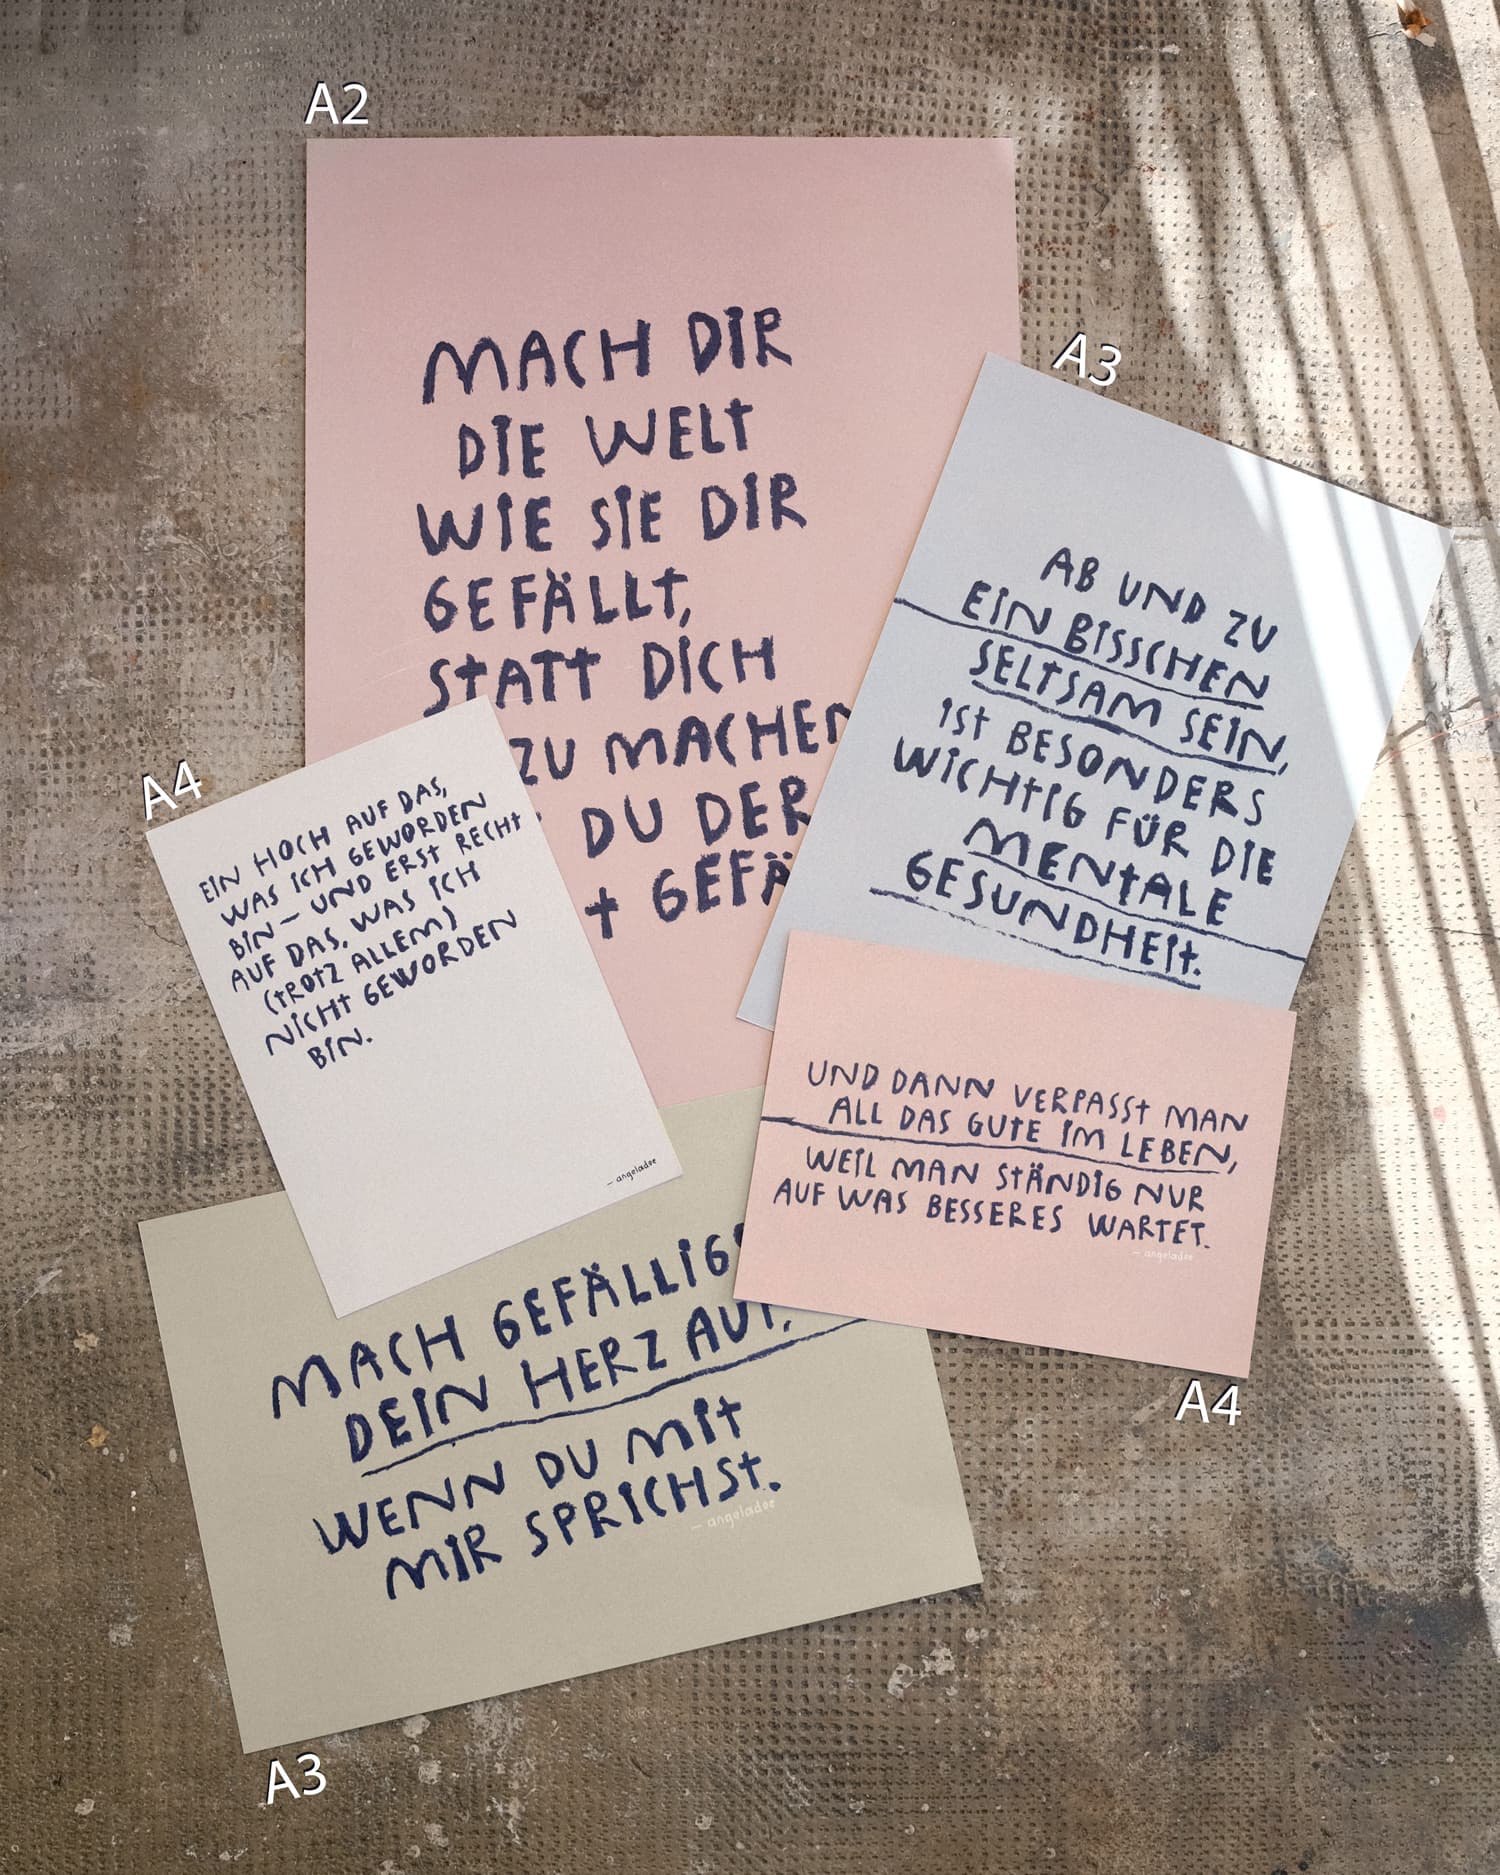 A2
MACH DIR
DIE WELT
WIE SIE DIR
GEFÄLLT,
STATT DICH
ZU MACHEN
DU DER
GEFÄ
A3
AB UND ZU
EIN BISSCHEN
SELTSAM SEIN,
IST BESONDERS
WICHTIG FÜR DIE
MENTALE
GESUNDHEIT.
A4
EIN HOCH AUF DAS,
WAS ICH GEWORDEN
BIN – UND ERST RECHT
AUF DAS, WAS ICH
(TROTZ ALLEM)
NICHT GEWORDEN
BIN.
– angeladoe
UND DANN VERPASST MAN
ALL DAS GUTE IM LEBEN,
WEIL MAN STÄNDIG NUR
AUF WAS BESSERES WARTET.
– angeladoe
A4
MACH GEFÄLLIG
DEIN HERZ AUF,
WENN DU MIT
MIR SPRICHST.
– angeladoe
A3